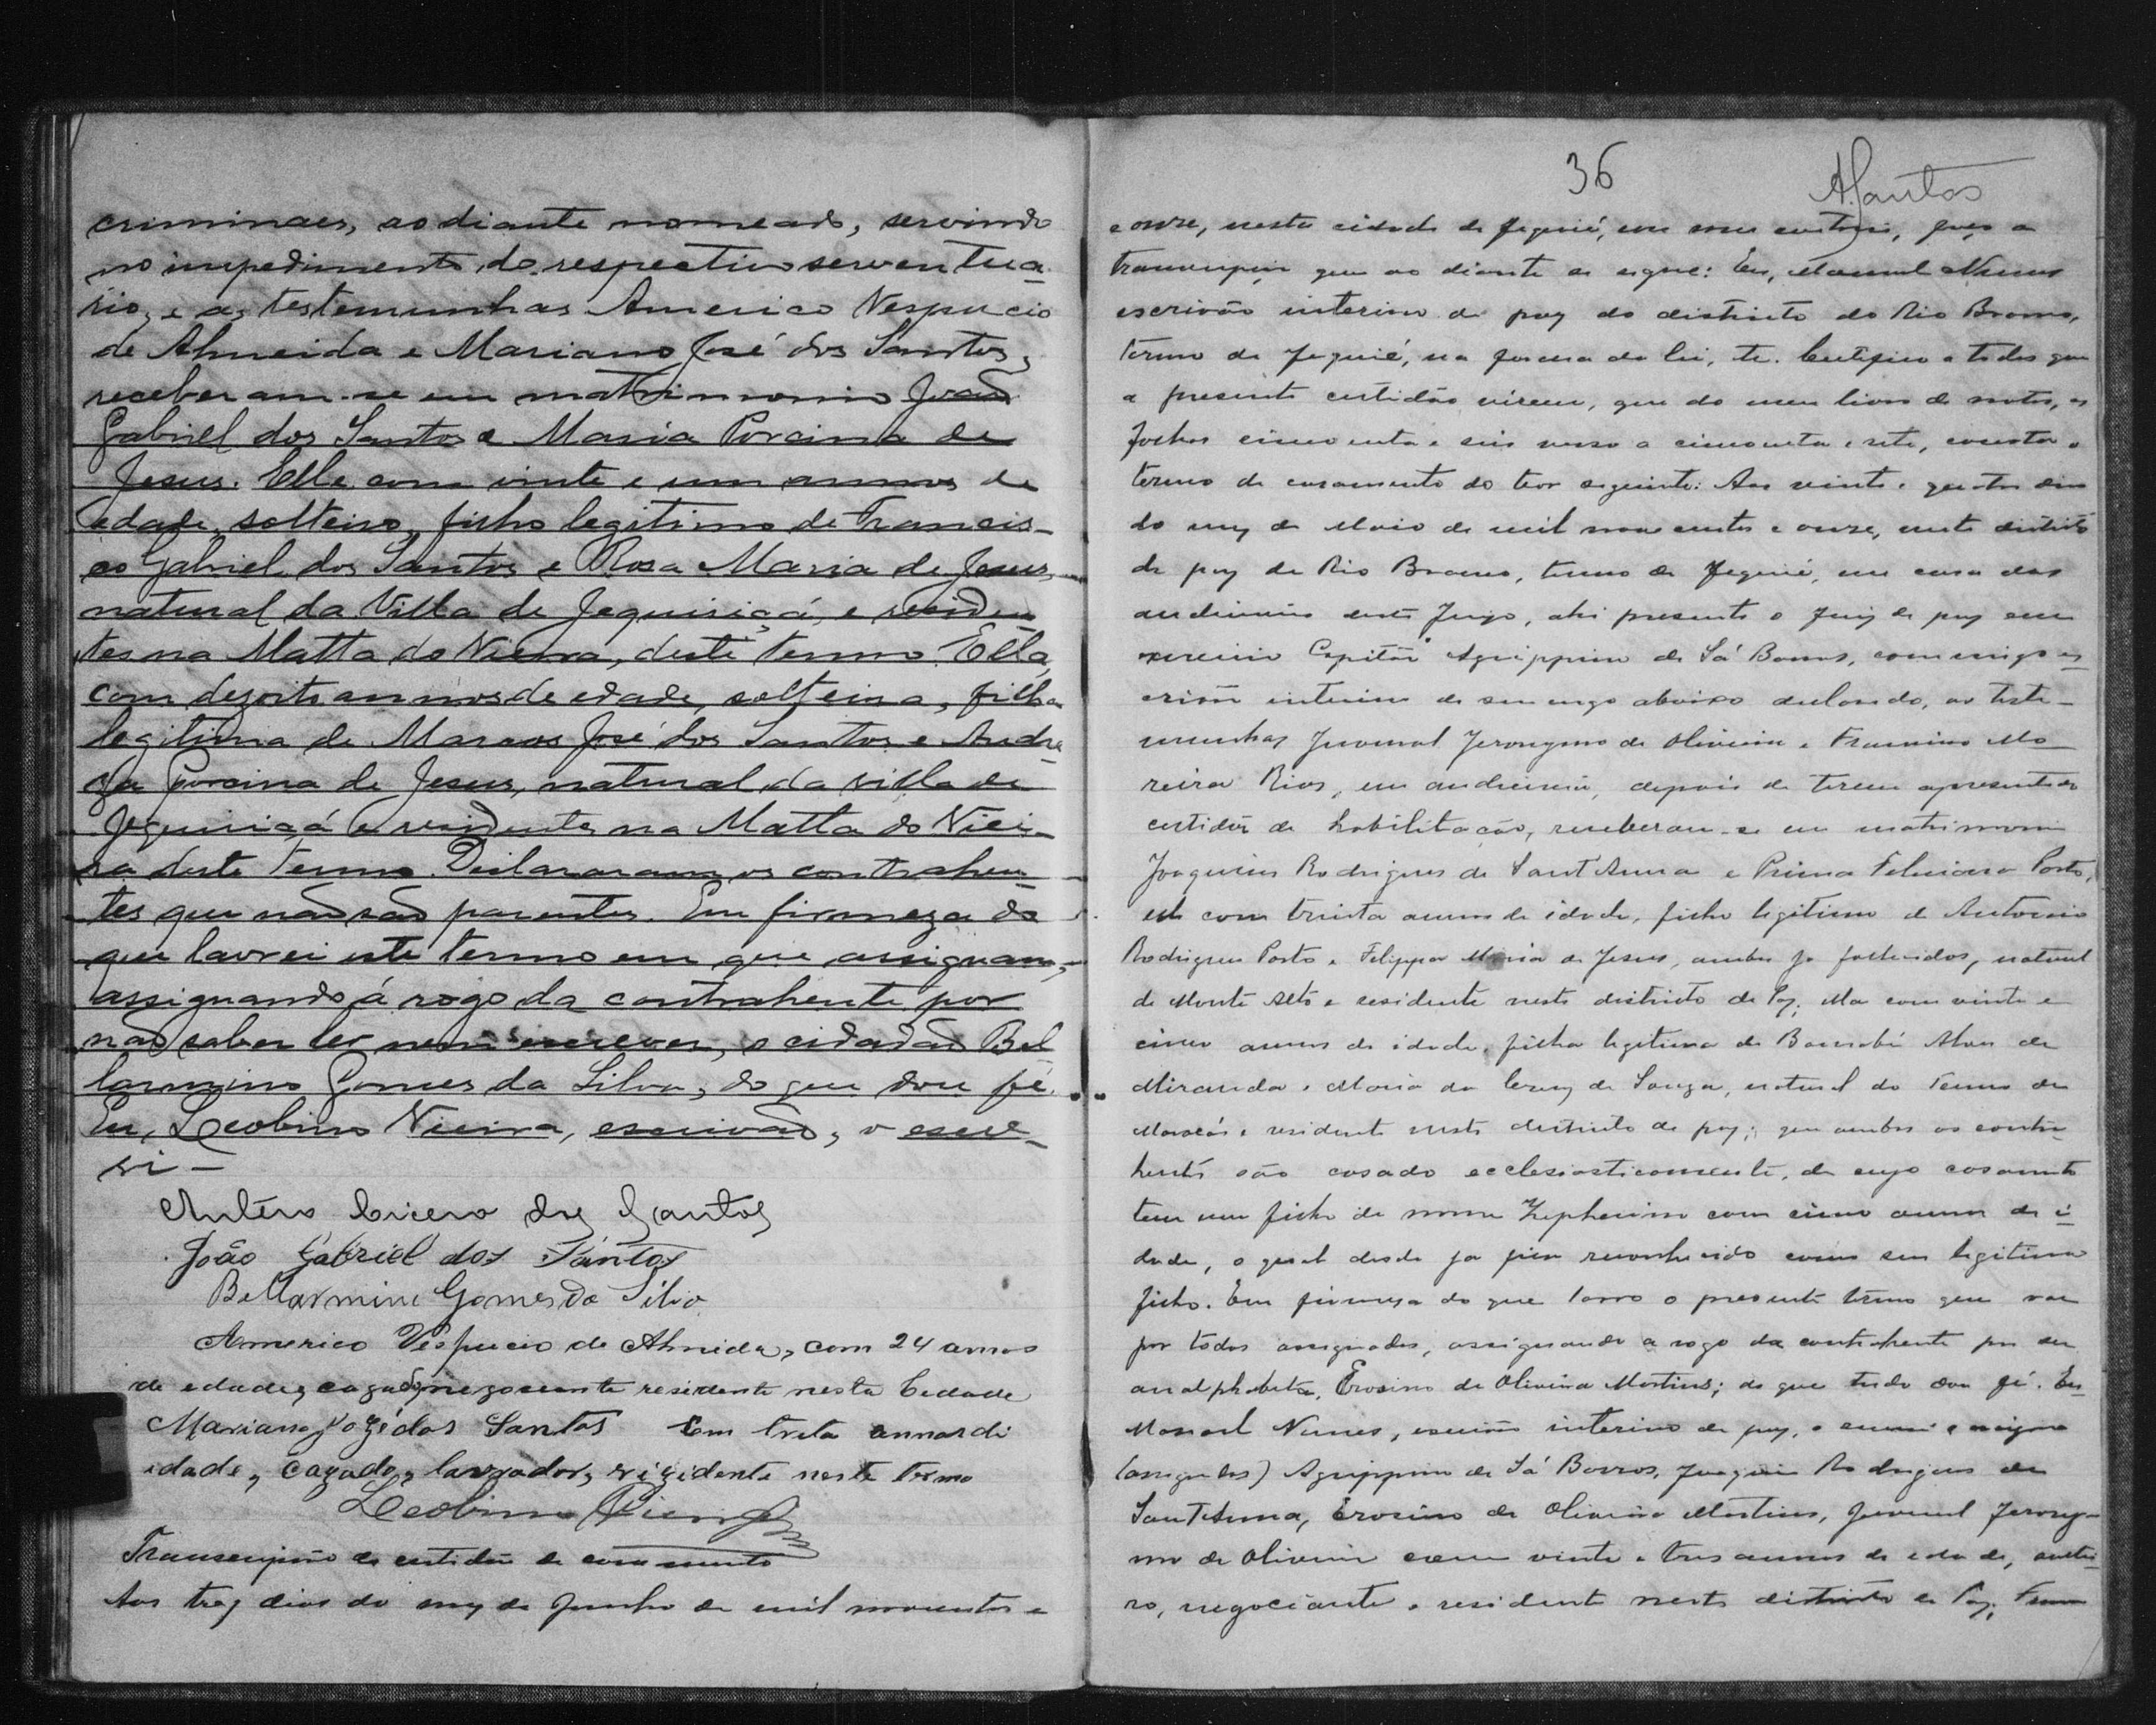 criminaes, ao diante nomeado, servindo
no impedimento do respectivo serventua-
rio, e as testemunhas Americo Vespucio
de Almeida e Mariano José dos Santos,
receberam-se em matrimonio João
Gabriel dos Santos e Maria Porcina de
Jesus. Elle com vinte e um annos de
edade, solteiro, filho legitimo de Francis-
co Gabriel dos Santos e Rosa Maria de Jesus,
natural da Villa de Jequiriçá, e residen-
tes na Matta do Vieira, deste termo. Ella,
com dezoito annos de edade, solteira, filha
legitima de Marcos José dos Santos e Andre-
za Porcina de Jesus, natural da villa de
Jequiriçá e residentes na Matta do Viei-
ra deste termo. Declararam os contrahen-
tes que não são parentes. Em firmeza do
que lavrei este termo em que assignam,
assignando á rogo da contrahente por
não saber ler nem escrever, o cidadão Bel-
larmino Gomes da Silva, do que dou fé.
Eu, Leobino Vieira, escrivão, o escre-
vi —
Antero Cicero dos Santos
João Gabriel dos Santos
Bellarmino Gomes da Silva
Americo Vespucio de Almeida, com 24 annos
de edade, cazado, negociante residente nesta Cedade
Mariano Jozé dos Santos com treta annos di
edade, cazado, lavrador, rizidente neste termo
Leobino Vieira
Transcripção de certidão de casamento
Aos trez dias do mez de Junho de mil novecentos e
36
A Santos
e onze, nesta cidade de Jequié, em meu cartorio, faço a
transcripção que ao diante se segue: Eu, Manoel Nunes
escrivão interino de paz do districto do Rio Branco,
termo de Jequié, na forma da lei, etc. Certifico a todos que
a presente certidão virem, que do meu livro de notas, as
folhas cincoenta e seis verso a cincoenta e sete, consta o
termo de casamento do teor seguinte: Aos vinte e quatro dias
do mez de Maio de mil nove centos e onze, neste districto
de paz de Rio Branco, termo de Jequié, em casa das
audiencias deste Juizo, ahi presente o Juiz de paz em
exercicio Capitão Agrippino de Sá Barros, commigo es-
crivão interino de seu cargo abaixo declarado, as teste-
munhas Juvenal Jeronymo de Oliveira e Francino Mo-
reira Rios, em audiencia, depois de terem apresentado
certidão de habilitação, receberam-se em matrimonio
Joaquim Rodrigues de Sant'Anna e Prima Feliciana Porto,
elle com trinta annos de idade, filho legitimo de Antonio
Rodrigues Porto e Filippa Maria de Jesus, ambos ja fallecidos, natural
de Monte Alto e residente neste districto de Paz; Ella com vinte e
cinco annos de idade, filha legitima de Barnabé Alves de
Miranda e Maria da Cruz de Souza, natural do Termo de
Maracás e residente neste districto de paz; que ambos os contra-
hentes são casado ecclesiasticamente, de cujo casamento
tem um filho de nome Zepherino com cinco annos de i-
dade, o qual desde ja fica reconhecido como seu legitimo
filho. Em firmeza do que lavro o presente termo que vae
por todos assignados, assignando a rogo da contrahente por ser
analphabeta, Erosino de Oliveira Martins; do que tudo dou fé. Eu
Manoel Nunes, escrivão interino de paz, o escrevi e assigno
(assignados) Agrippino de Sá Barros, Joaquim Rodrigues de
Sant'Anna, Erosino de Oliveira Martins, Juvenal Jerony-
mo de Oliveira com vinte e tres annos de edade, soltei-
ro, negociante e residente neste districto de Paz,